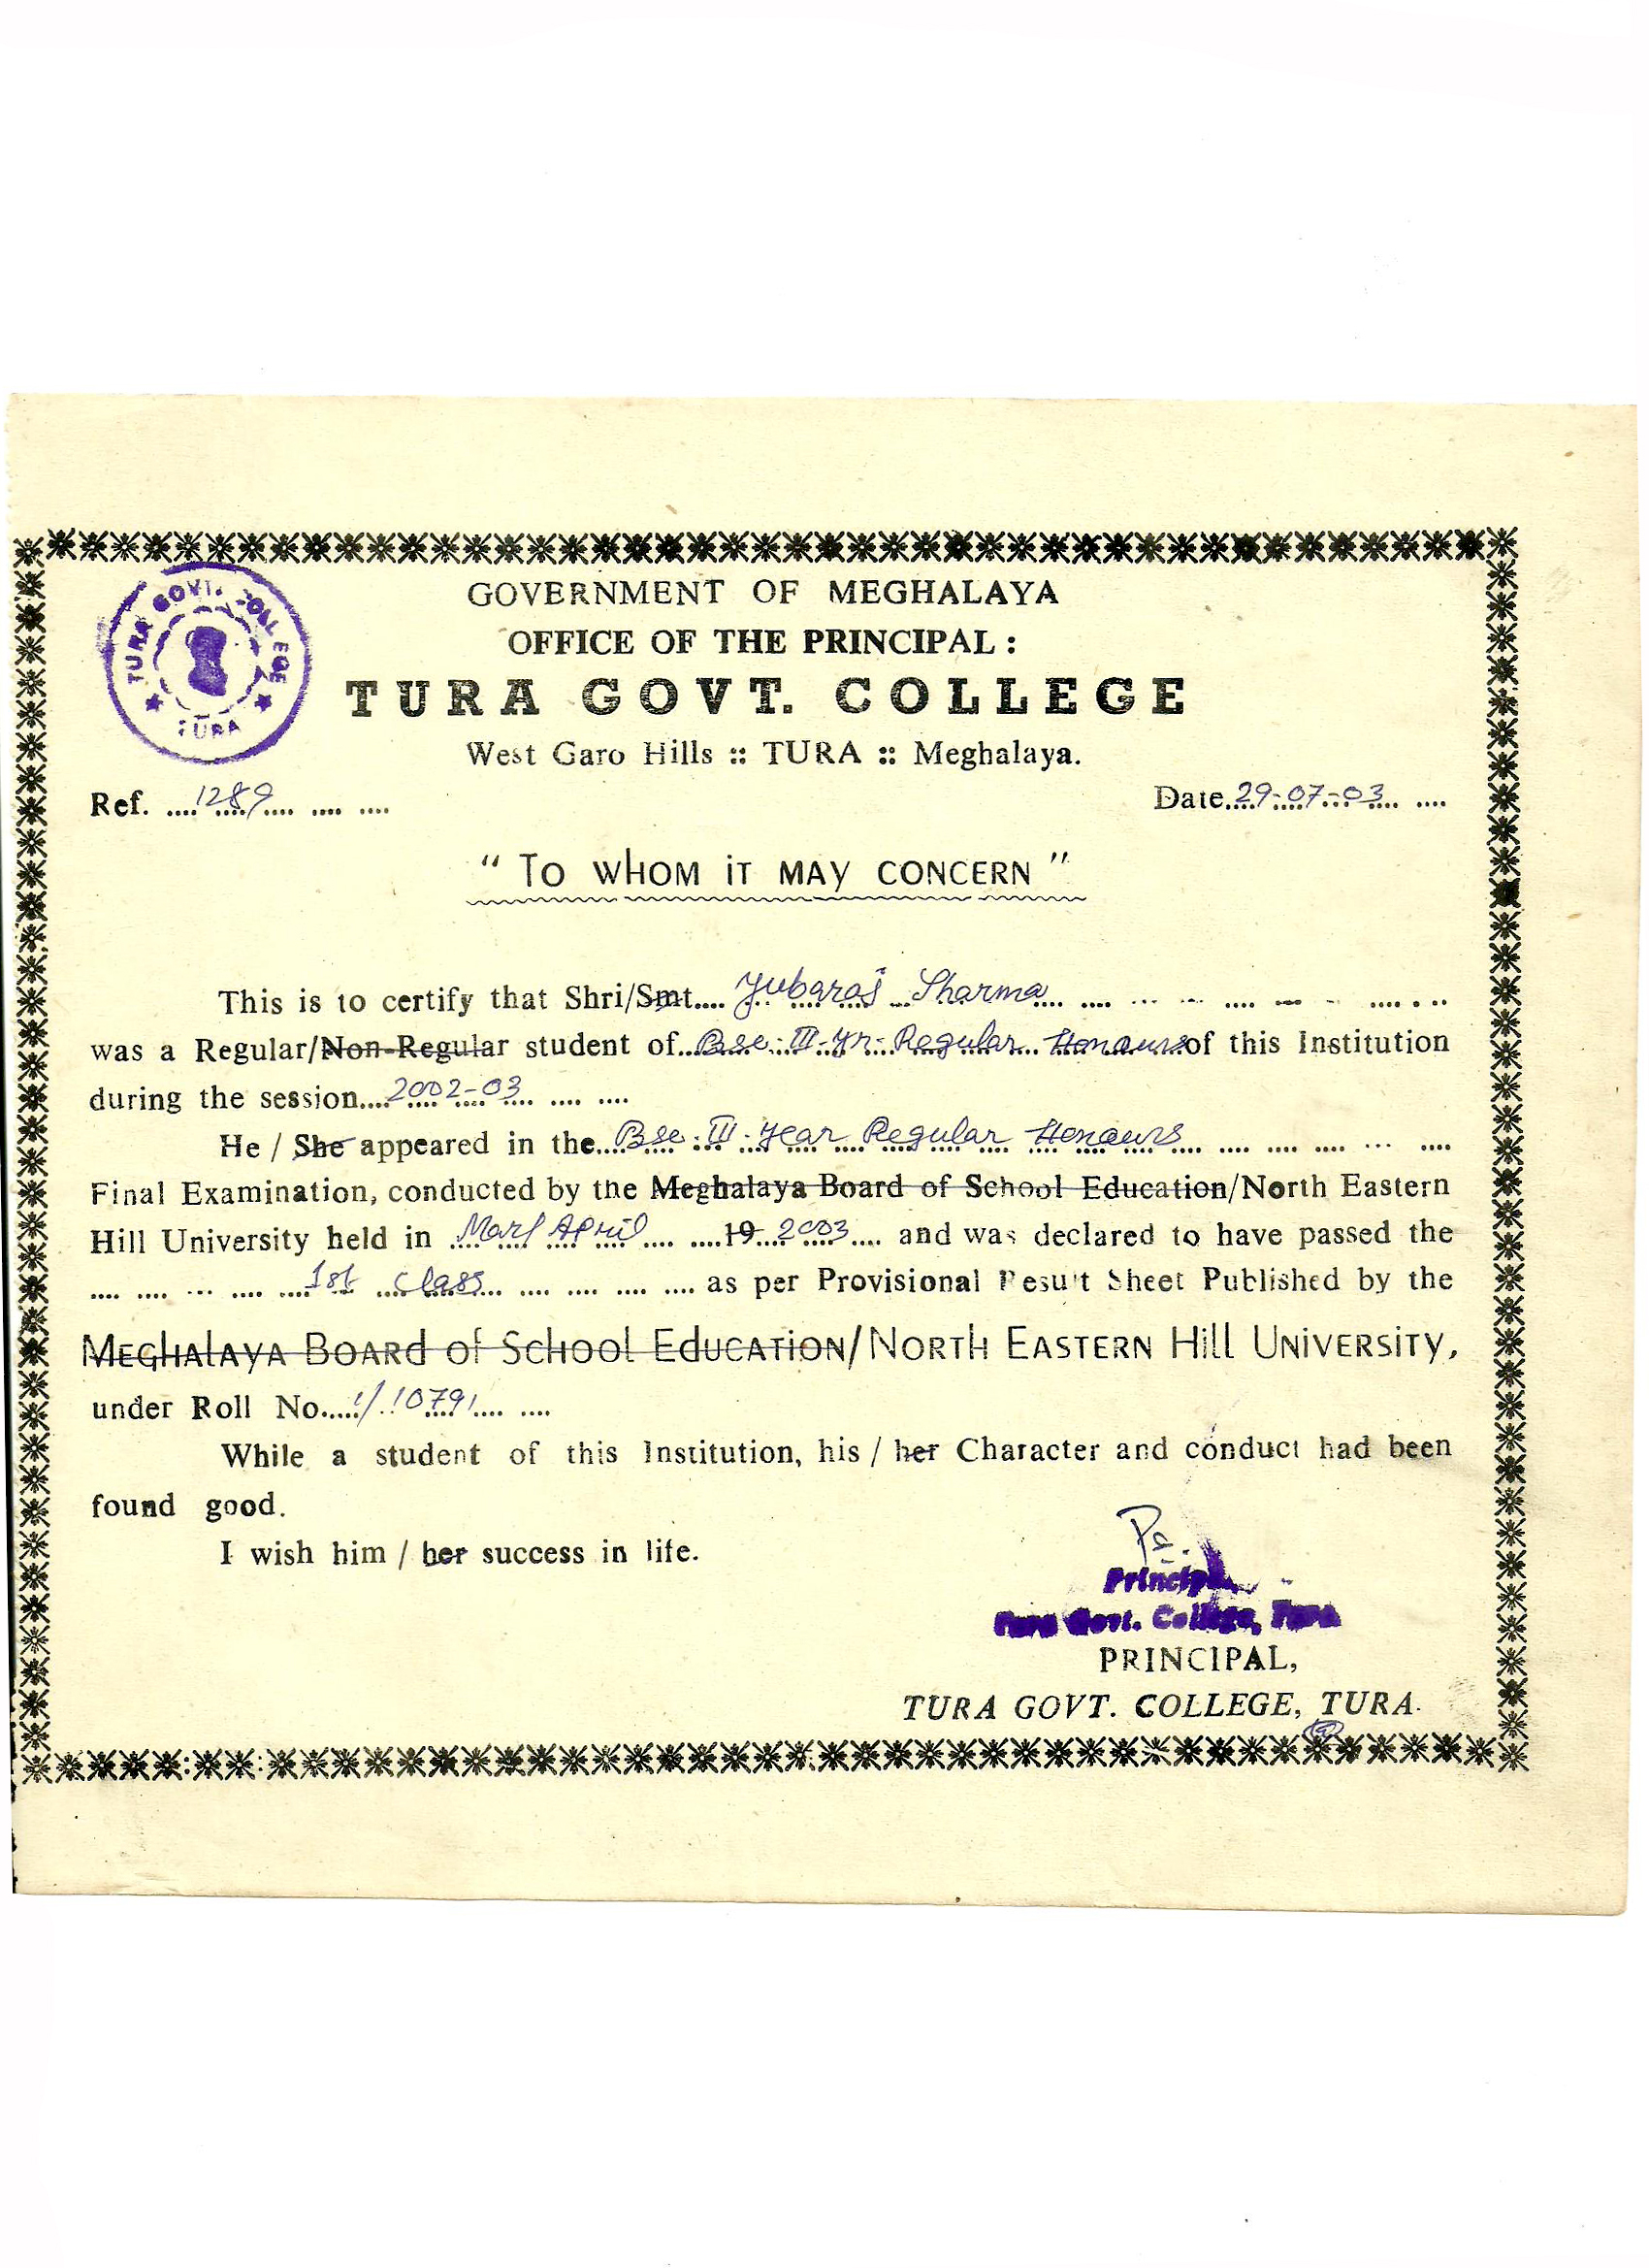 GOVERNMENT OF MEGHALAYA
OFFICE OF THE PRINCIPAL :
TURA GOVT. COLLEGE
TURA GOVT. COLLEGE
TURA
West Garo Hills :: TURA :: Meghalaya.
Ref. 1289
Date 29-07-03
" To whom it may concern "
This is to certify that Shri/Smt. Yubaraj Sharma
was a Regular/Non-Regular student of Bsc. III-Yr. Regular Honours of this Institution
during the session 2002-03
He / She appeared in the Bsc. III. Year Regular Honours
Final Examination, conducted by the Meghalaya Board of School Education/North Eastern
Hill University held in Mar/April 19 2003 and was declared to have passed the
1st Class as per Provisional Result Sheet Published by the
Meghalaya Board of School Education/North Eastern Hill University,
under Roll No. 1/10791
While a student of this Institution, his / her Character and conduct had been
found good.
I wish him / her success in life.
Principal
Tura Govt. College, Tura
PRINCIPAL,
TURA GOVT. COLLEGE, TURA.